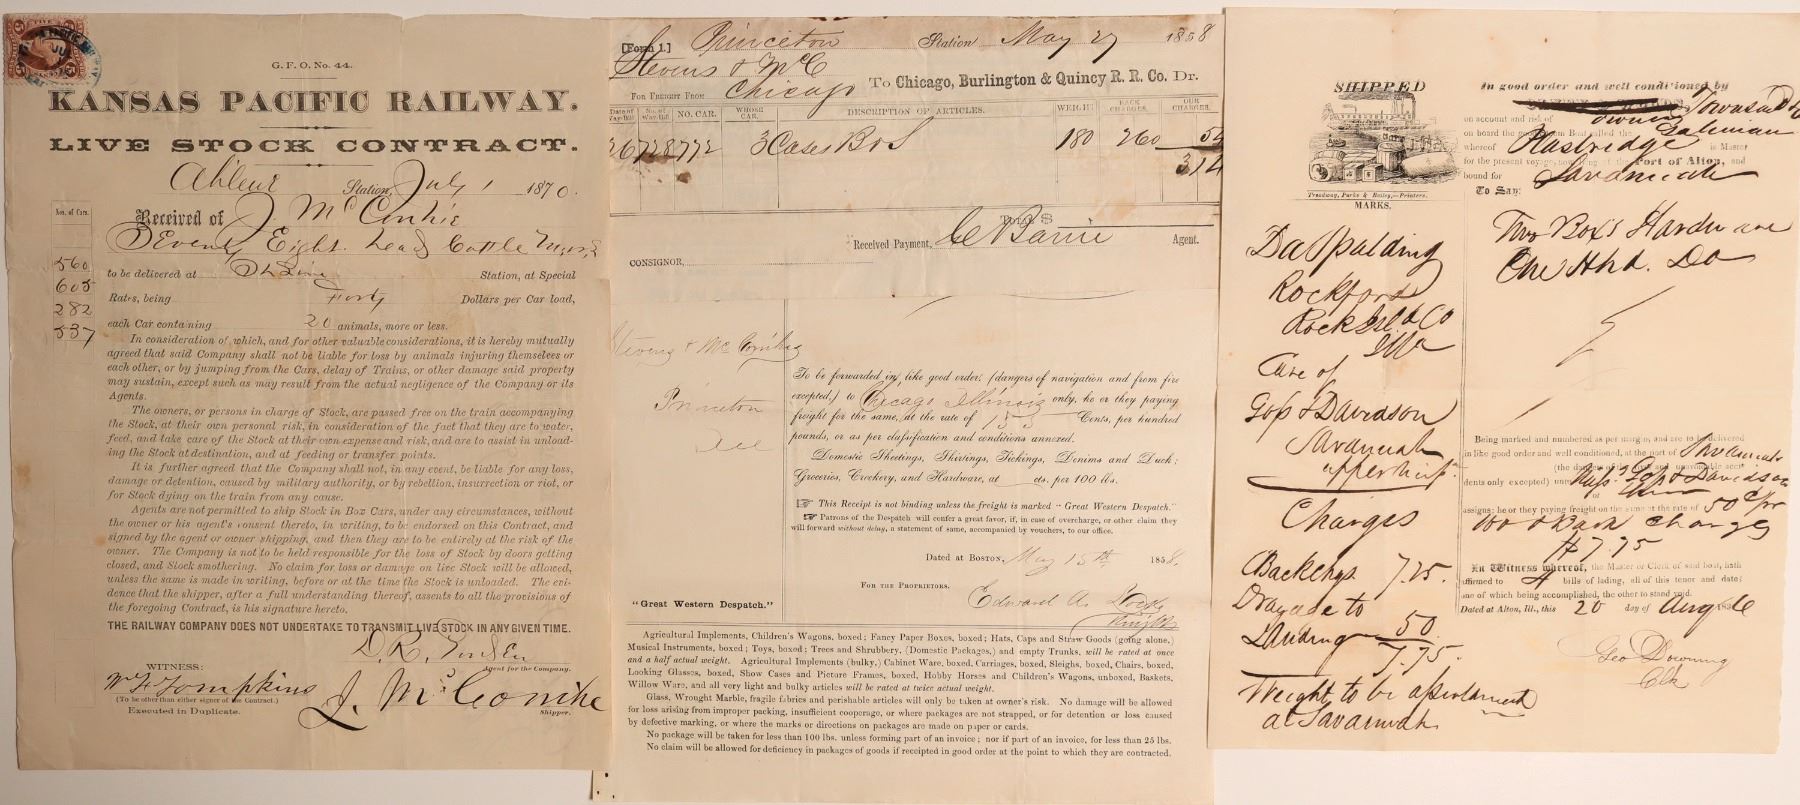 G. F. O. No. 44.
KANSAS PACIFIC RAILWAY.
LIVE STOCK CONTRACT.
Station, July 1 1870.
Nos. of Cars.
Received of J. Mc Conkie
Seventy Eight head Cattle
560
605
282
537
to be delivered at Station, at Special
Rates, being Forty Dollars per Car load,
each Car containing 20 animals, more or less.
In consideration of which, and for other valuable considerations, it is hereby mutually
agreed that said Company shall not be liable for loss by animals injuring themselves or
each other, or by jumping from the Cars, delay of Trains, or other damage said property
may sustain, except such as may result from the actual negligence of the Company or its
Agents.
The owners, or persons in charge of Stock, are passed free on the train accompanying
the Stock, at their own personal risk, in consideration of the fact that they are to water,
feed, and take care of the Stock at their own expense and risk, and are to assist in unload-
ing the Stock at destination, and at feeding or transfer points.
It is further agreed that the Company shall not, in any event, be liable for any loss,
damage or detention, caused by military authority, or by rebellion, insurrection or riot, or
for Stock dying on the train from any cause.
Agents are not permitted to ship Stock in Box Cars, under any circumstances, without
the owner or his agent's consent thereto, in writing, to be endorsed on this Contract, and
signed by the agent or owner shipping, and then they are to be entirely at the risk of the
owner. The Company is not to be held responsible for the loss of Stock by doors getting
closed, and Stock smothering. No claim for loss or damage on live Stock will be allowed,
unless the same is made in writing, before or at the time the Stock is unloaded. The evi-
dence that the shipper, after a full understanding thereof, assents to all the provisions of
the foregoing Contract, is his signature hereto.
THE RAILWAY COMPANY DOES NOT UNDERTAKE TO TRANSMIT LIVE STOCK IN ANY GIVEN TIME.
Agent for the Company.
WITNESS:
Wm F Tompkins
(To be other than either signer of the Contract.)
Executed in Duplicate.
J. Mc Conkie
Shipper.
[Form 1.] Princeton Station May 27 1858
Stevens & McC
To Chicago, Burlington & Quincy R. R. Co. Dr.
For Freight From Chicago
Date of Way-Bill No. of Way-Bill NO. CAR. WHOSE CAR. DESCRIPTION OF ARTICLES. WEIGHT BACK CHARGES. OUR CHARGES.
26 728 772 3 Cases B & S 180 260 54
314
TOTAL $
Received Payment, Agent.
CONSIGNOR,
Stevens & McConkey
Princeton
Ill
To be forwarded in like good order, (dangers of navigation and from fire
excepted,) to Chicago Illinois only, he or they paying
freight for the same, at the rate of 155 Cents, per hundred
pounds, or as per classification and conditions annexed.
Domestic Sheetings, Shirtings, Tickings, Denims and Duck;
Groceries, Crockery, and Hardware, at cts. per 100 lbs.
☞ This Receipt is not binding unless the freight is marked "Great Western Despatch."
☞ Patrons of the Despatch will confer a great favor, if, in case of overcharge, or other claim they
will forward without delay, a statement of same, accompanied by vouchers, to our office.
Dated at Boston, May 15th 1858.
For the Proprietors.
Edward A.
"Great Western Despatch."
Agricultural Implements, Children's Wagons, boxed; Fancy Paper Boxes, boxed; Hats, Caps and Straw Goods (going alone,)
Musical Instruments, boxed; Toys, boxed; Trees and Shrubbery, (Domestic Packages,) and empty Trunks, will be rated at once
and a half actual weight. Agricultural Implements (bulky,) Cabinet Ware, boxed, Carriages, boxed, Sleighs, boxed, Chairs, boxed,
Looking Glasses, boxed, Show Cases and Picture Frames, boxed, Hobby Horses and Children's Wagons, unboxed, Baskets,
Willow Ware, and all very light and bulky articles will be rated at twice actual weight.
Glass, Wrought Marble, fragile fabrics and perishable articles will only be taken at owner's risk. No damage will be allowed
for loss arising from improper packing, insufficient cooperage, or where packages are not strapped, or for detention or loss caused
by defective marking, or where the marks or directions on packages are made on paper or cards.
No package will be taken for less than 100 lbs. unless forming part of an invoice; nor if part of an invoice, for less than 25 lbs.
No claim will be allowed for deficiency in packages of goods if receipted in good order at the point to which they are contracted.
SHIPPED
Treadway, Parks & Bailey,—Printers.
MARKS.
In good order and well conditioned by
on account and risk of owner
on board the good Steam Boat called the
whereof Hastridge is Master
for the present voyage, now lying at the Port of Alton, and
bound for Savannah
To Say:
Two Box's Hardware
One Hhd. Do
Da Spalding
Rockford
Rock Isld Co
Ills
Care of
Goss & Davidson
Savannah
upper Missi
Charges
Backchgs. 7.25.
Drayage to
Landing 50
7.75.
Weight to be ascertained
at Savannah
Being marked and numbered as per margin, and are to be delivered
in like good order and well conditioned, at the port of Savannah
(the dangers of the river and unavoidable acci-
dents only excepted) unto Mess. Goss & Davidson
or
assigns; he or they paying freight on the same at the rate of 50 c pr
100 & Back charges
$7.75
In Witness whereof, the Master or Clerk of said boat, hath
affirmed to 4 bills of lading, all of this tenor and date;
one of which being accomplished, the other to stand void.
Dated at Alton, Ill., this 20 day of Aug
Geo Downing
Clk